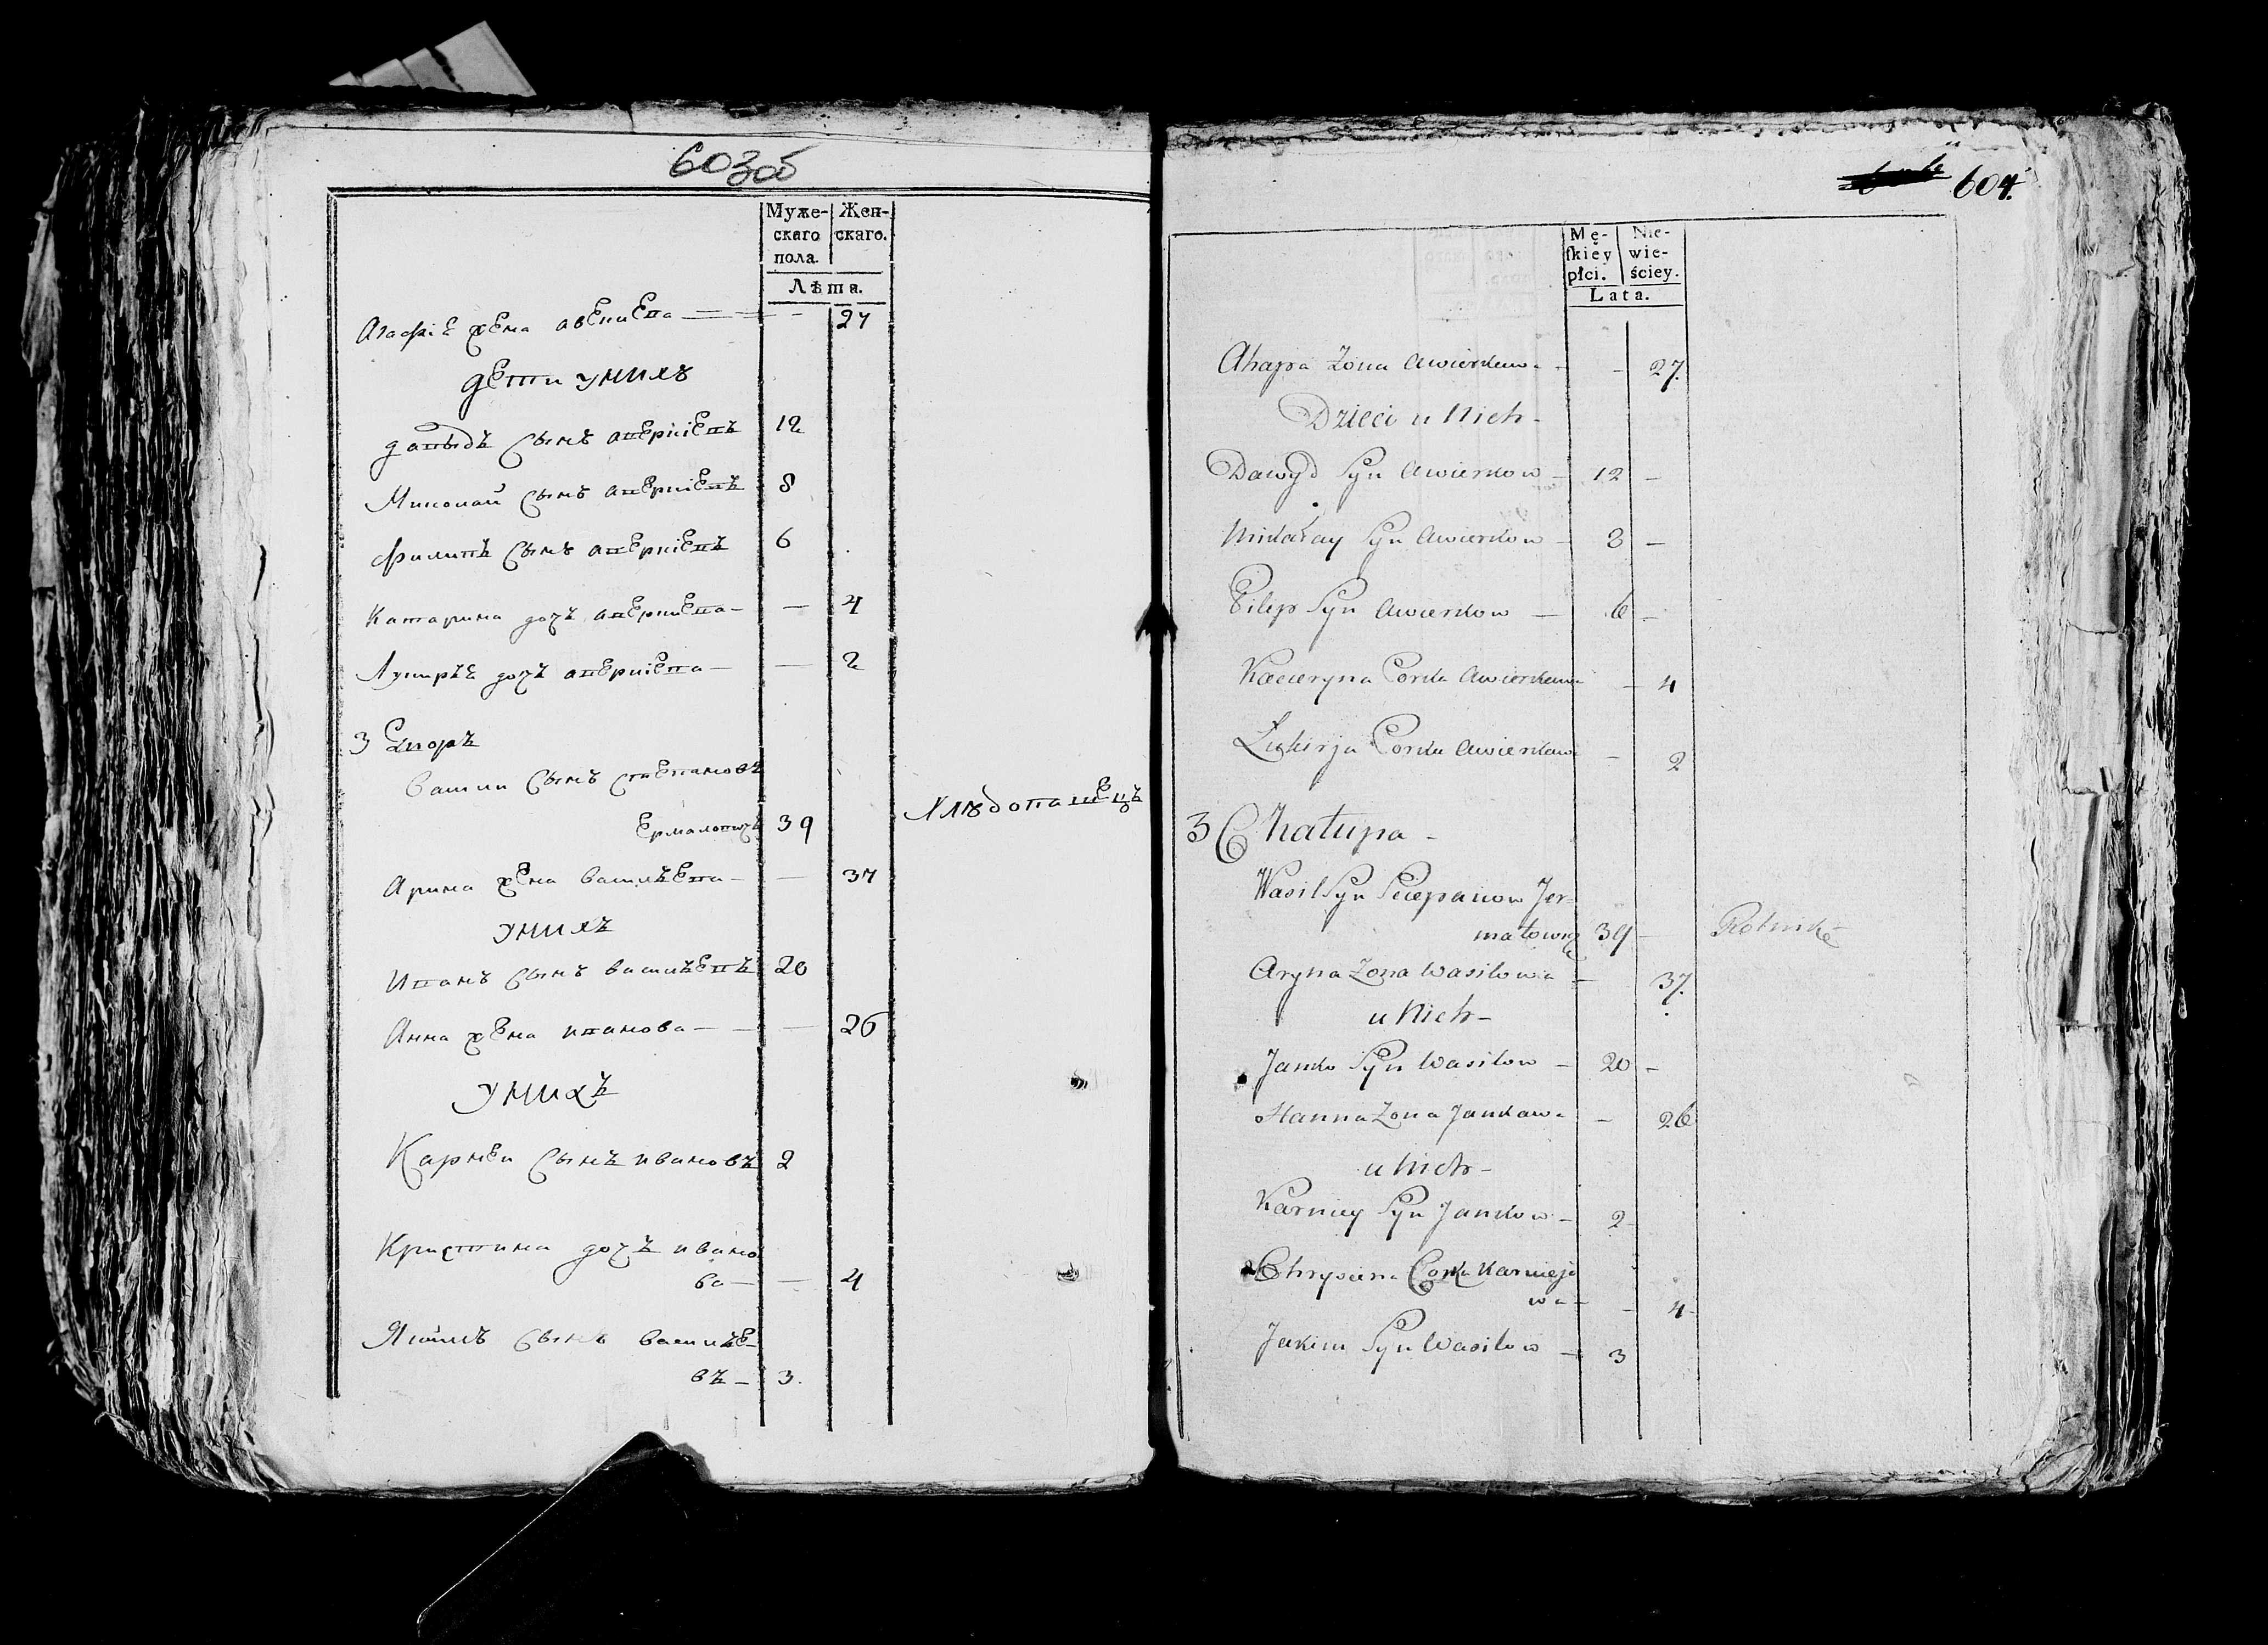 603об
Муже-
скаго
пола.
Жен-
скаго.
Лѣта.
Агафіе жена авериева — — 27
дети унихъ
давыдъ сынъ аверкіевъ 12
Миколай сынъ аверкіевъ 8
филипъ сынъ аверкіевъ 6
Катарина дочъ аверкиева — — 4
Лукирѣе дочъ аверкіева — — 2
3 Двор
Васили сынъ степановъ
Ермаловичъ 39 Хлѣбопашецъ
Арина жена василѣева — — 37
унихъ
Иванъ сынъ василѣевъ 20
Анна жена иванова — — 26
унихъ
Карнеи сынъ ивановъ 2
Кристина дочъ ивано
ва — — 4
Якимъ сынъ василѣе-
въ — 3.
604.
Mę-
ſkiéy
płci.
Nie-
wie-
ściey.
Lata.
Ahapa Zona Awierkowa - - 27.
Dzieci u Nich -
Dawyd Syn Awierkow - 12 -
Mikałay Syn Awierkow - 8 -
Filip Syn Awierkow - 6 -
Kacieryna Corka Awierkowa - 4
Łukirja Corka Awierkowa - 2
3 Chatupa -
Wasil Syn Sciepanow Jer-
matowicz 39 - Rolnik
Aryna Zona Wasilowa - 37.
u Nich -
Janko Syn Wasilow - 20 -
Hanna Zona Jankowa - 26
u Nich -
Karniey Syn Jankow - 2 -
Chrysciena Corka Karnieja
wa - - 4 -
Jakim Syn Wasilow - 3